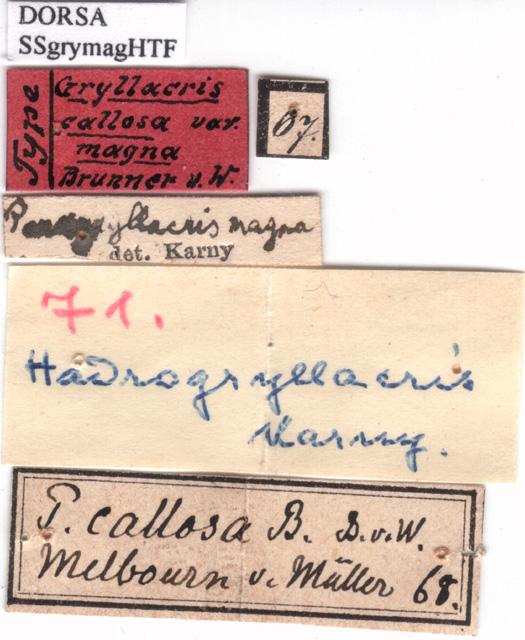 DORSA
SSgrymagHTF
Type
Gryllacris
callosa var.
magna
Brunner v. W.
67.
gryllacris magna
det. Karny
71.
Hadrogryllacris
Karny.
P. callosa B. B.v.W.
Melbourn v. Müller 68.